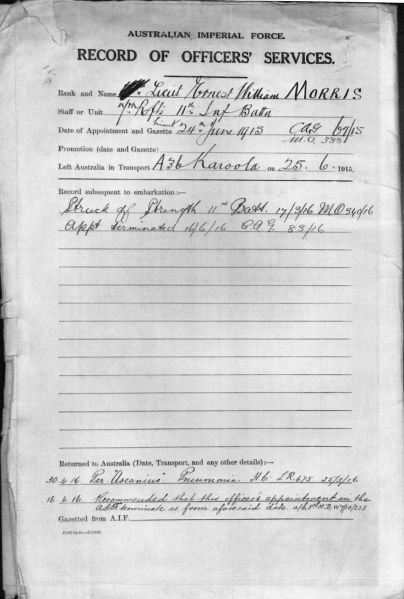 AUSTRALIAN IMPERIAL FORCE.
RECORD OF OFFICERS' SERVICES.
Rank and Name Lieut Ernest William MORRIS
Staff or Unit Rfts 11th Inf Battn
Date of Appointment and Gazette 24th June 1915 CAG 67/15
M.O. 338
Promotion (date and Gazette)
Left Australia in Transport A36 Karoola on 25. 6. 1915.
Record subsequent to embarkation:—
Struck off Strength 11th Batt. 17/3/16 MO 340/16
Appt terminated 16/6/16 CAG 83/16
Returned to Australia (Date, Transport, and any other details):—
30 4 16 Per "Ascanius" Pneumonia H6 LR 675 25/5/16
16. 6. 16. Recommended that this officer's appointment in the
A.I.F. terminate as from aforesaid date
Gazetted from A.I.F.